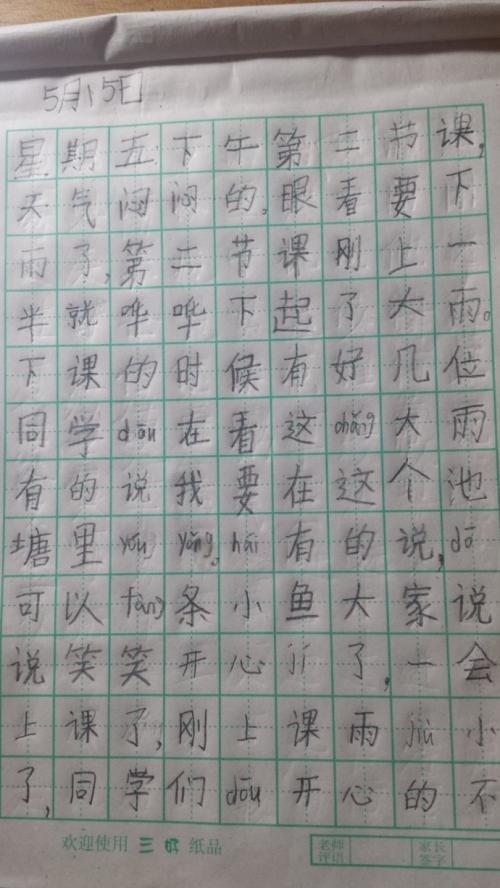 5月15日
星期五下午第二节课,
天气闷闷的。眼看要下
雨了,第二节课刚上一
半就哗哗下起了大雨。
下课的时候有好几位
同学dōu在看这chǎng大雨
有的说我要在这个池
塘里yóu yǒng。hái有的说,dō
可以tǎng条小鱼大家说
说笑笑开心jí了,一会
上课了,刚上课雨jiù小
了,同学们dōu开心的不
欢迎使用 三 纸品
老师评语 家长签字